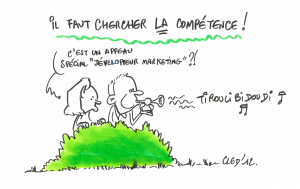 iL FAUT CHERCHER LA COMPÉTENCE !
C'EST UN APPEAU
SPÉCIAL "DÉVELOPPEUR MARKETING" ?!
TIROULiBiDOUDi
CLED'12.